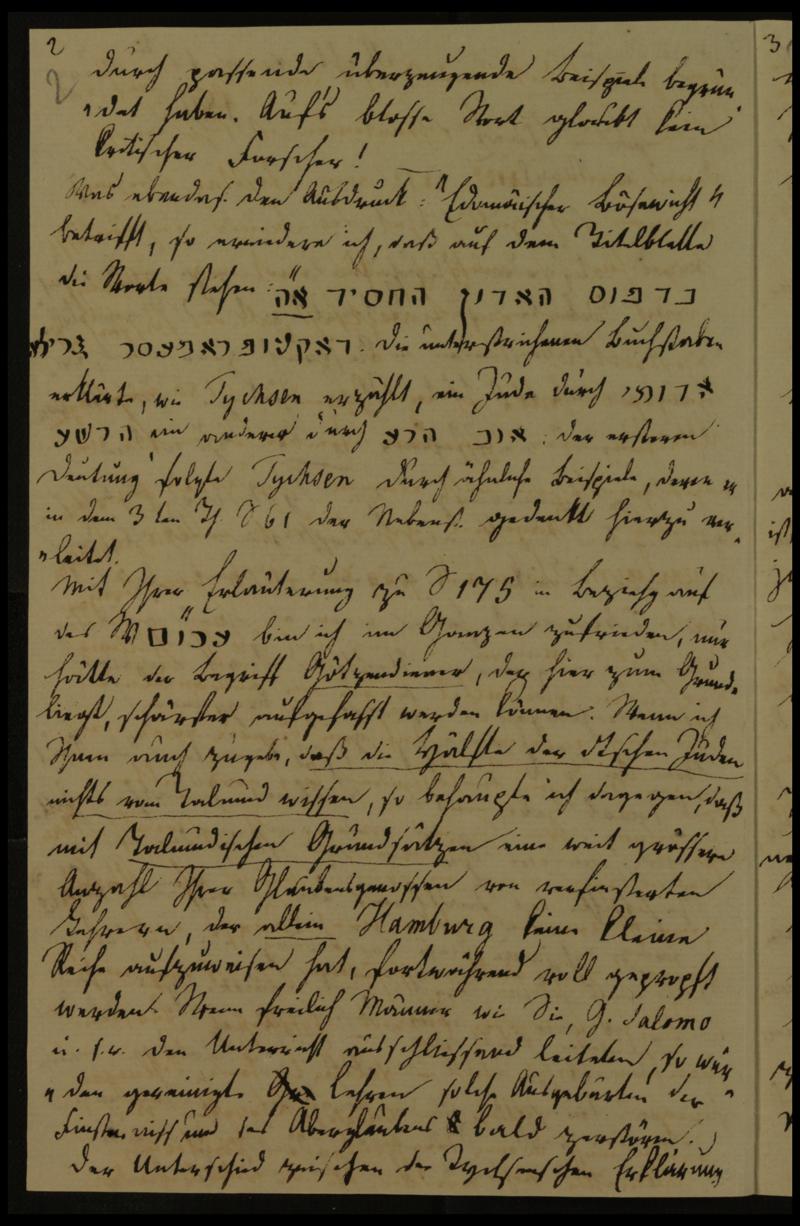 2
durch passende überzeugende Beispiele begrün
det haben. Auf's blosse Wort glaubt kein
kritischer Forscher!
Was ebendas. den Ausdruck: "Edomäischer Bösewicht"
betrifft, so erwiedere ich, daß auf dem Titelblatte
die Worte stehen: בדפוס האדון החסיד א"ה
Die unterstrichenen Buchstaben
erklärte, wie Tychsen erzählt, ein Jude durch אדומי
הרשע ein anderer durch אוב הרע: der ersteren
Deutung folgte Tychsen durch ähnliche Beispiele, deren er
in dem 3ten Th. S 61 der Nebenst. gedenkt hierzu ver
leitet.
Mit Ihrer Erläuterung zu S 175 in Beziehg auf
das W עכו"ם bin ich im Ganzen zufrieden, nur
hätte der Begriff Götzendiener, der hier zum Grunde
liegt, schärfer aufgefasst werden können. Wenn ich
Ihnen auch zugebe, daß die Hälfte der dtschen Juden
nichts vom Talmud wissen, so behaupte ich dagegen, daß
mit Talmudischen Grundsätzen eine weit grössere
Anzahl Ihrer Glaubensgenossen von verfinsterten
Lehrern, der allein Hamburg keine kleine
Reihe aufzuweisen hat, fortwährend voll gepropft
werden. Wenn freilich Männer wie Sie, G. Salomo
u. s. w. den Unterricht ausschliessend leiteten, so wür
den gereinigte Lehren solche Ausgeburten der
Finsterniss und des Aberglaubens bald zerstören.
Der Unterschied zwischen der Tychsenschen Erklärung
3